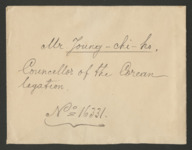 Mr Joung-chi-ho.
Councellor of the Corean
legation
No 16331.